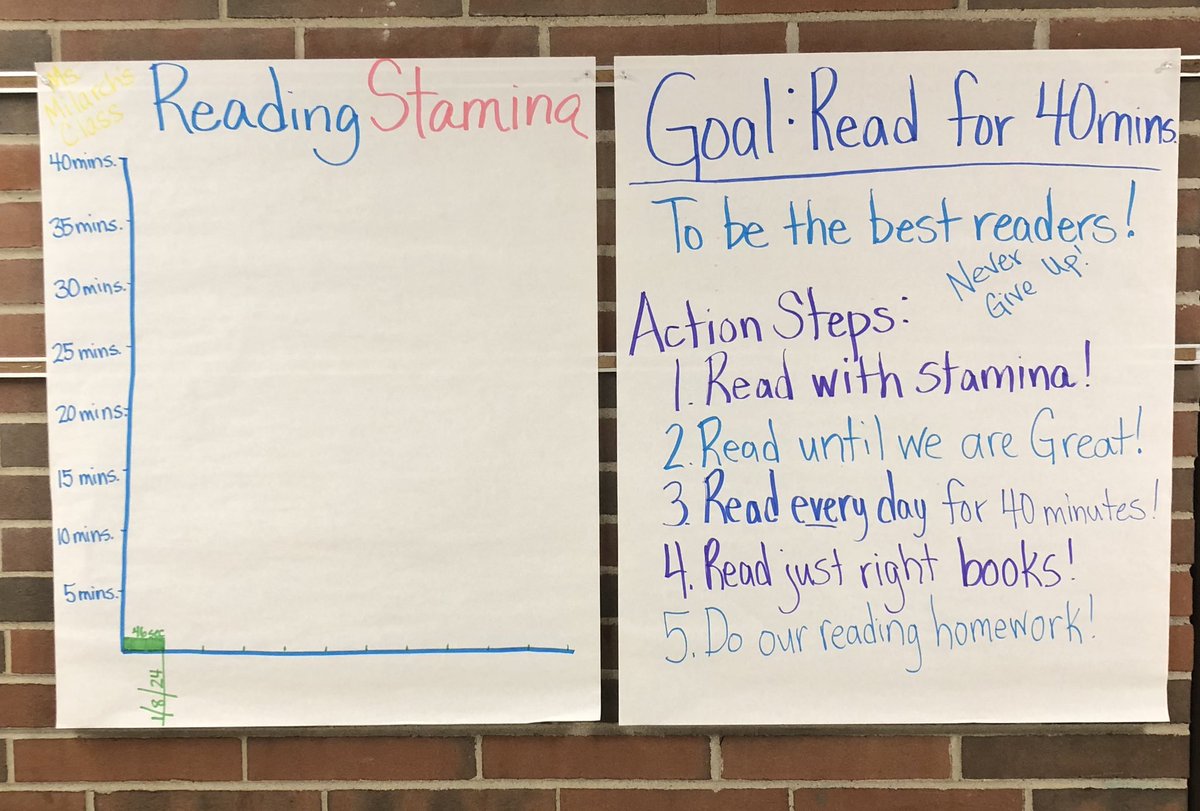 Ms.
Milarch's
Class
Reading Stamina
40mins.
35mins.
30mins.
25mins.
20mins.
15mins.
10mins.
5mins.
46sec
1/8/24
Goal: Read for 40mins.
To be the best readers!
Never
Give Up!
Action Steps:
1. Read with stamina!
2. Read until we are Great!
3. Read every day for 40 minutes!
4. Read just right books!
5. Do our reading homework!